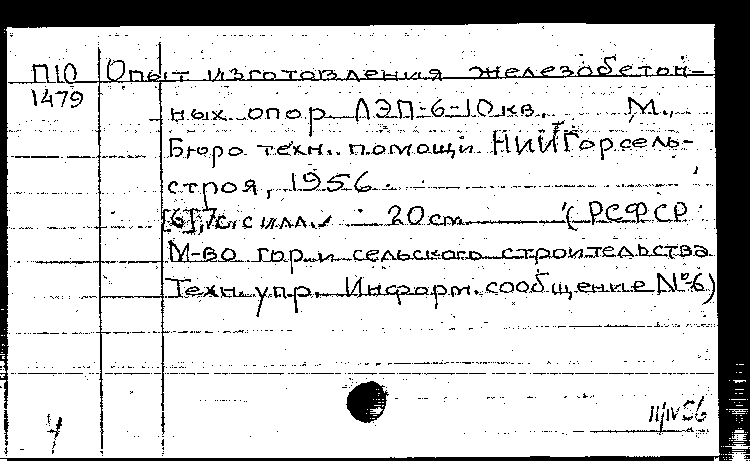 П10 Опыт изготовления железобетон-
1479
ных опор ЛЭП-6-10кв. М.,
Бюро техн. помощи НИИГорсель-
строя, 1956.
[6],7с. с илл. 20см (РСФСР
М-во гор. и сельского строительства
Техн. упр. Информ. сообщение №6)
11/IV 56